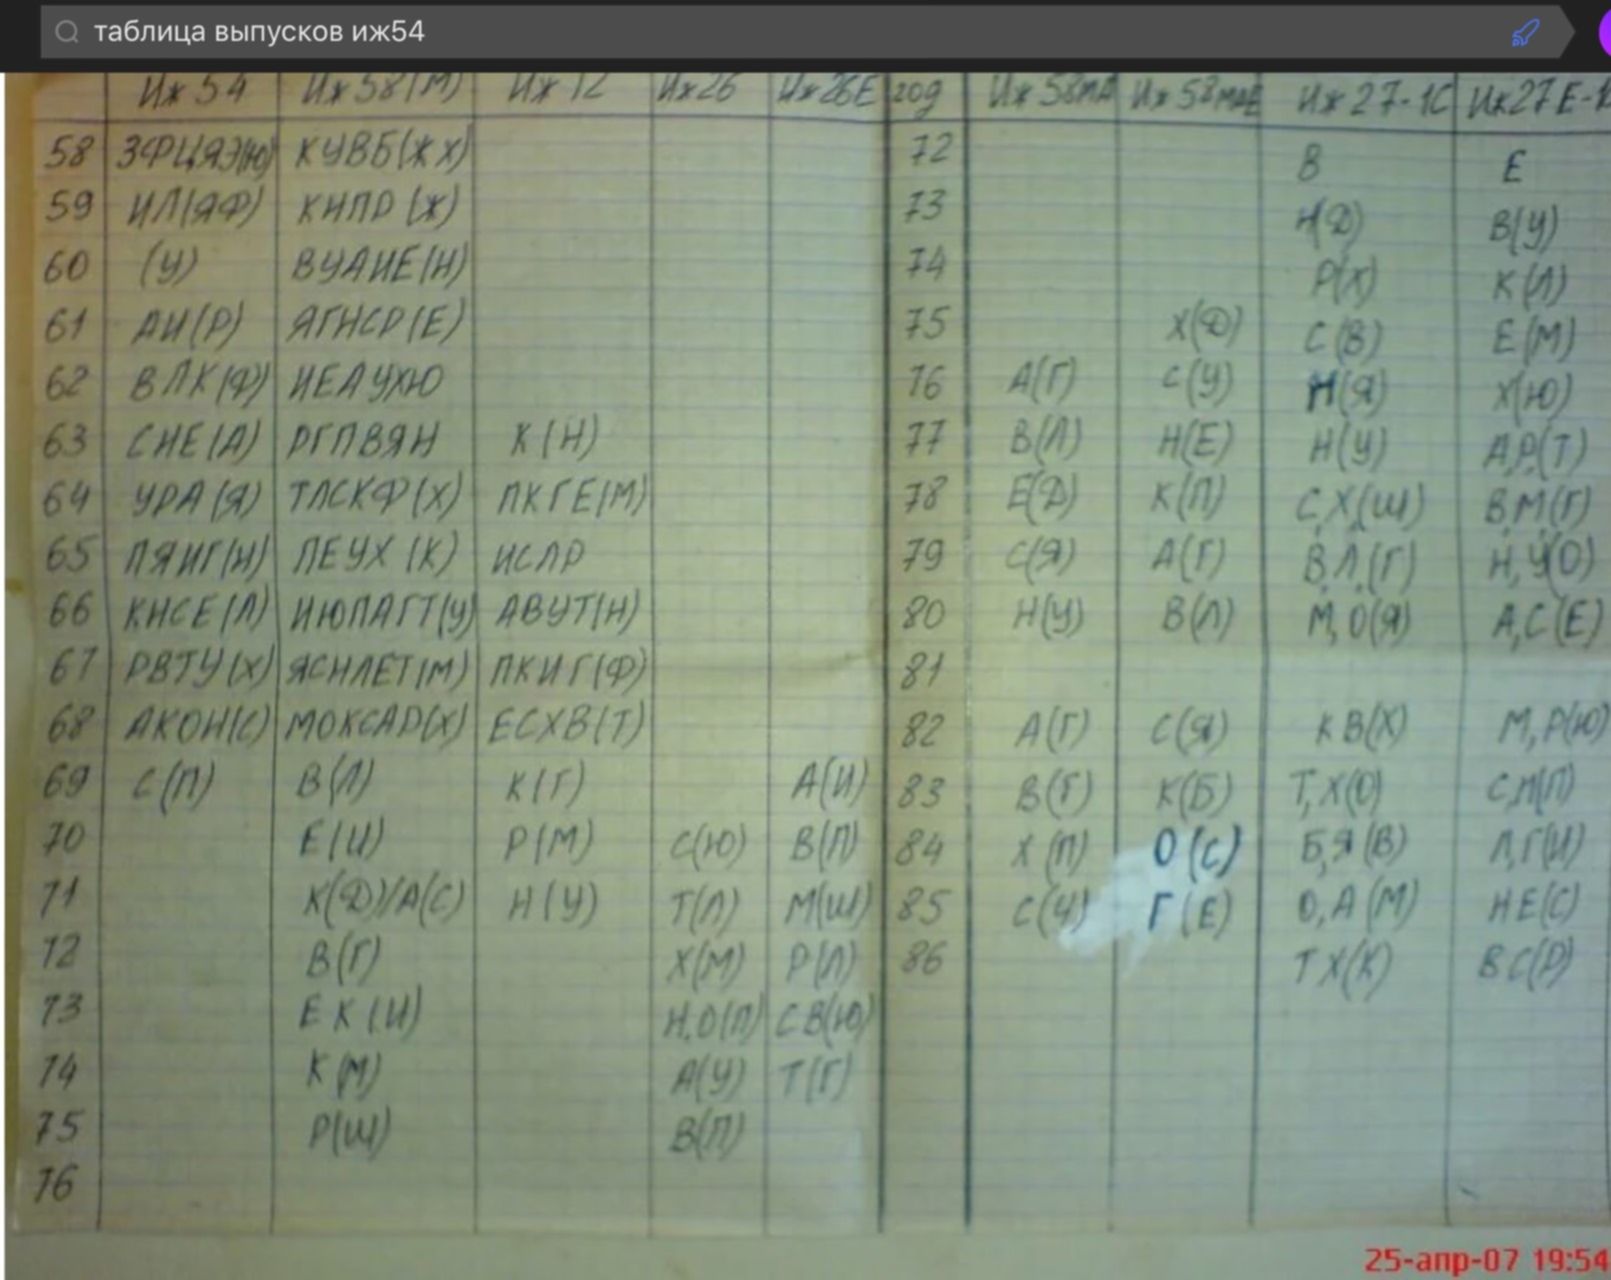 таблица выпусков иж54
Иж 54 Иж 58(М) Иж 12 Иж26 Иж26Е год Иж 58МА Иж 58МАЕ Иж 27-1С Иж27Е-1
58 ЗФЦЯЭ(Ю) КУВБ(ЖХ) 72 В Е
59 ИЛ(ЯФ) КНПР(Ж) 73 Н(Д) В(У)
60 (У) ВУАИЕ(Н) 74 Р(Х) К(Л)
61 АИ(Р) ЯГНСР(Е) 75 Х(Д) С(В) Е(М)
62 ВЛК(Ф) ИЕАУХЮ 76 А(Г) С(У) Н(Я) Х(Ю)
63 СНЕ(А) РГПВЯН К(Н) 77 В(Л) Н(Е) Н(У) А,Р,(Т)
64 УРА(Я) ТЛСКФ(Х) ПКГЕ(М) 78 Е(Д) К(П) С,Х,(Ш) В,М(Г)
65 ПЯИГ(Н) ПЕУХ(К) ИСЛР 79 С(Я) А(Г) В,Л,(Г) Н,У(О)
66 КНСЕ(Л) ИЮПАГТ(У) АВУТ(Н) 80 Н(У) В(Л) М,О(Я) А,С(Е)
67 РВТУ(Х) ЯСНЛЕТ(М) ПКИГ(Ф) 81
68 АКОН(С) МОКСАР(Х) ЕСХВ(Т) 82 А(Г) С(Я) КВ(Х) М,Р(Ю)
69 С(П) В(Л) К(Г) А(И) 83 В(Г) К(Б) Т,Х(О)
70 Е(И) Р(М) С(Ю) В(П) 84 Х(П) О(С) Б,Я(В) Л,Г(И)
71 К(Д)/А(С) Н(У) Т(Л) М(Ш) 85 С(Ч) Г(Е) О,А(М) НЕ(С)
72 В(Г) Х(М) Р(Л) 86 ТХ(К) ВС(Р)
73 ЕК(И) Н,О(П) СВ(Ю)
74 К(М) А(У) Т(Г)
75 Р(Ш) В(П)
76
25-апр-07 19:54